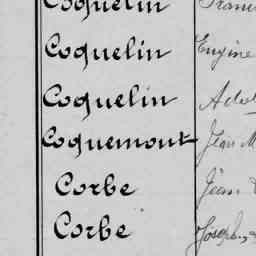 Coquelin Franc
Coquelin Eugène
Coquelin Adol
Coquemont Jean M
Corbe Jean
Corbe Joseph